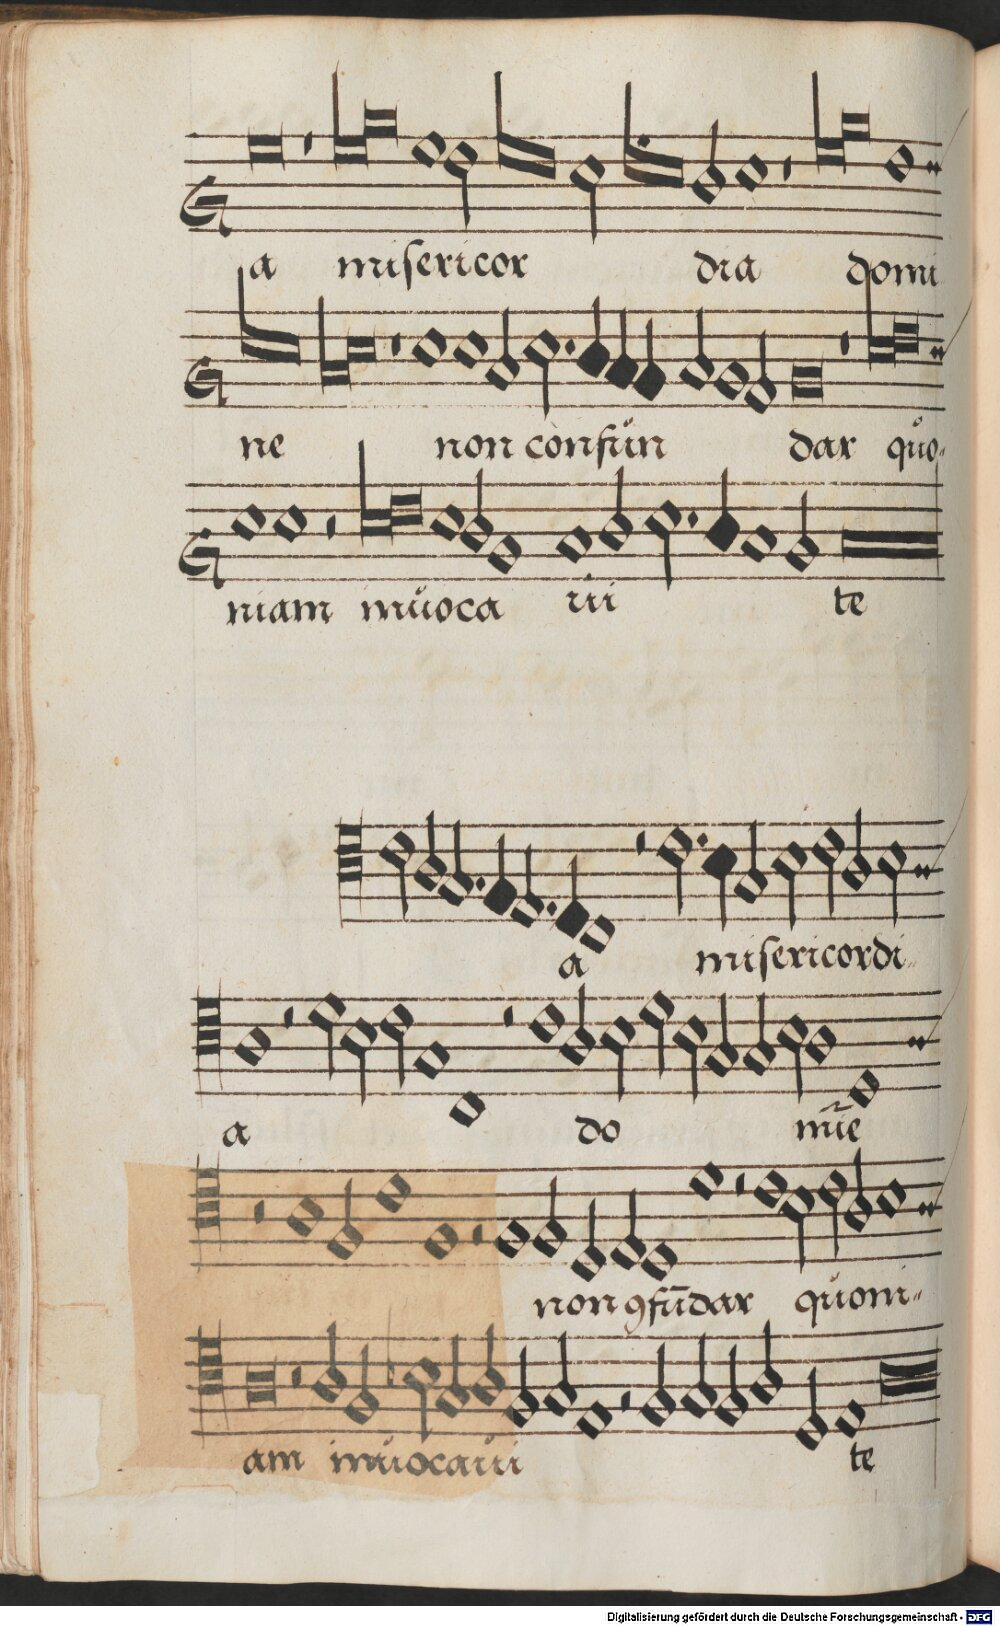 a misericor dia domi
ne non confun dar quo-
niam inuoca ui te
a misericordi-
a do mīe
non ꝯfūdar quoni-
am inuocaui te
Digitalisierung gefördert durch die Deutsche Forschungsgemeinschaft - DFG